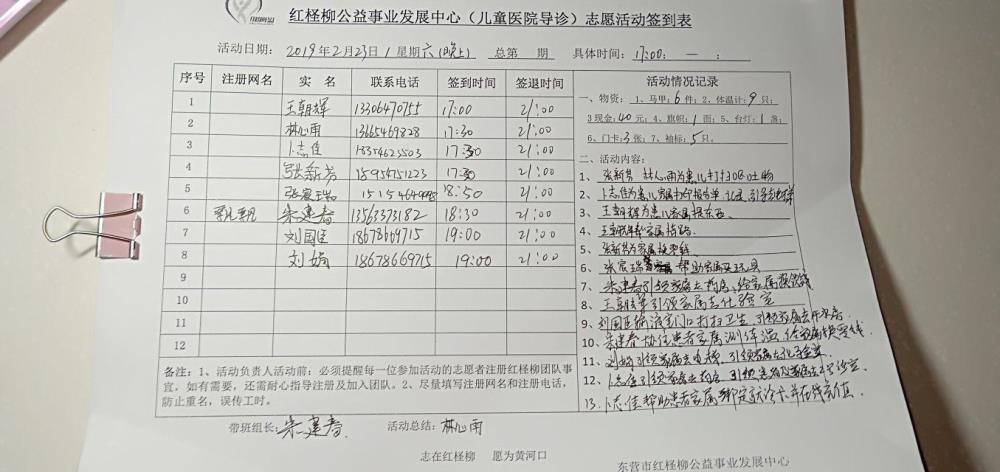 红柽柳公益事业发展中心（儿童医院导诊）志愿活动签到表
活动日期： 2019年2月23日/星期六(晚上) 总第 期 具体时间：17:00： — ：
序号 注册网名 实 名 联系电话 签到时间 签退时间 活动情况记录
1 王朝辉 13306470755 17:00 21:00
2 林心雨 13665469828 17:30 21:00
3 卜志佳 18354625503 17:30 21:00
4 张新芳 18954751223 17:30 21:00
5 张宸瑞 18:50 21:00
6 朱建春 13563373182 18:30 21:00
7 刘国臣 18678669715 19:00 21:00
8 刘娟 18678669715 19:00 21:00
9
10
11
12
一、物资： 1、马甲：6件；2、体温计：9只；
3现金：40元；4、旗帜：1面；5、台灯：1盏；
6、门卡：3张；7、袖标：5只。
二、活动内容：
1、张新芳 林心雨为患儿打扫呕吐物
2、卜志佳为患儿家属
3、王朝辉为患儿家属
4、王朝辉帮家属指路
5、张新芳为家属
6、张宸瑞 帮助家属
7、朱建春引领家属去药房、给家属换零钱
8、王朝辉引领家属去化验室
9、刘国臣输液室门口打扫卫生、引领家属去
10、朱建春协住患者家属测体温、给家属换零钱
11、刘娟引领家属去电梯、引领家属去化验室
12、卜志佳引领家属去药房
13、卜志佳帮助患者家属绑定就诊卡并在线充值.
备注：1、活动负责人活动前：必须提醒每一位参加活动的志愿者注册红柽柳团队事
宜，如有需要，还需耐心指导注册及加入团队。2、尽量填写注册网名和注册电话，
防止重名，误传工时。
带班组长：朱建春 活动总结：林心雨
志在红柽柳 愿为黄河口
东营市红柽柳公益事业发展中心